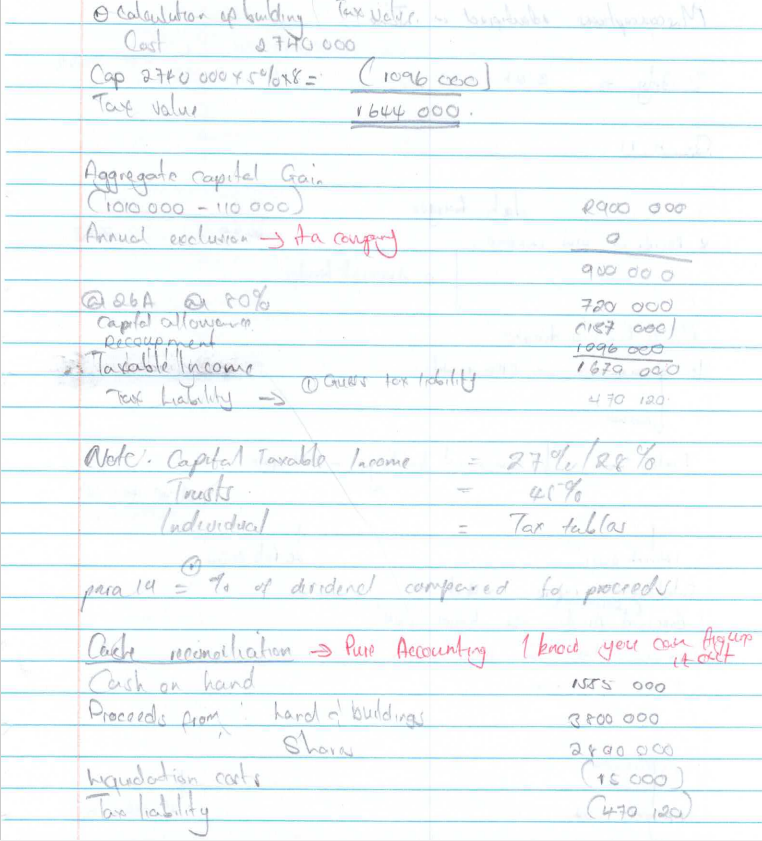 ⊖ Calculation of building Tax Value
Cost 2740 000
Cap 2740 000 x 5% x 8 = (1096 000)
Tax value 1644 000.
Aggregate capital Gain
(1010 000 - 110 000) R900 000
Annual exclusion → Its a company 0
900 000
@ 26A @ 80% 720 000
Capital allowance (137 000)
Recoupment 1096 000
∴ Taxable Income 1679 000
Tax Liability → ① Guess tax liability 470 120
Note: Capital Taxable Income = 27%/28%
Trusts = 45%
Individual = Tax tables
para 19 = % of dividend compared to proceeds
Cash reconciliation → Pure Accounting I know you can figure it out
Cash on hand 1555 000
Proceeds from: Land & buildings 3800 000
Shares 2890 000
Liquidation costs (15 000)
Tax liability (470 120)